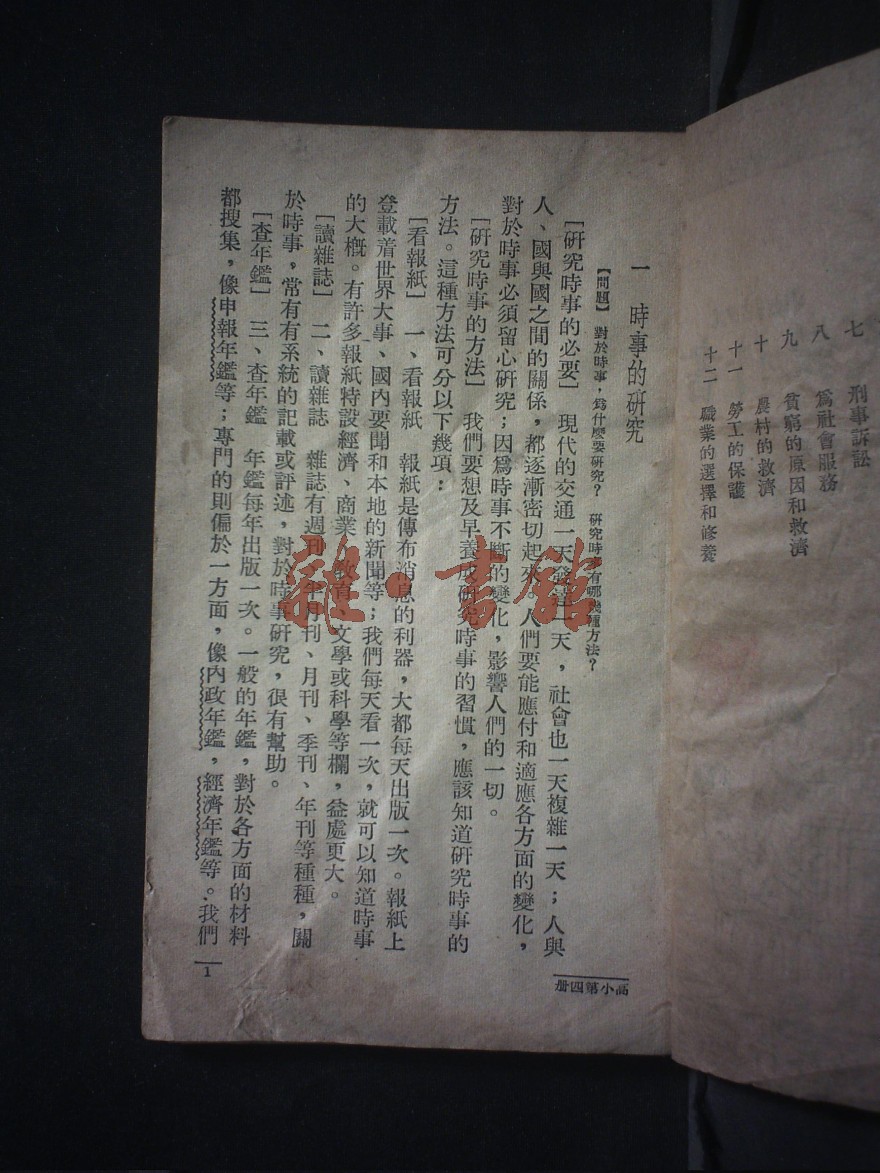 七　刑事訴訟
八　爲社會服務
九　貧窮的原因和救濟
十　農村的救濟
十一　勞工的保護
十二　職業的選擇和修養
高小第四册
一　時事的研究
【問題】　對於時事，爲什麽要研究？　研究時事有哪幾種方法？
［研究時事的必要］　現代的交通一天發達一天，社會也一天複雜一天；人與
人、國與國之間的關係，都逐漸密切起來，人們要能應付和適應各方面的變化，
對於時事必須留心研究；因爲時事不斷的變化，影響人們的一切。
［研究時事的方法］　我們要想及早養成研究時事的習慣，應該知道研究時事的
方法。這種方法可分以下幾項：
［看報紙］　一、看報紙　報紙是傳布消息的利器，大都每天出版一次。報紙上
登載着世界大事、國內要聞和本地的新聞等；我們每天看一次，就可以知道時事
的大槪。有許多報紙特設經濟、商業、教育、文學或科學等欄，益處更大。
［讀雜誌］　二、讀雜誌　雜誌有週刊、半月刊、月刊、季刊、年刊等種種，關
於時事，常有有系統的記載或評述，對於時事研究，很有幫助。
［查年鑑］　三、查年鑑　年鑑每年出版一次。一般的年鑑，對於各方面的材料
都搜集，像申報年鑑等；專門的則偏於一方面，像內政年鑑，經濟年鑑等。我們
1
雜·書館